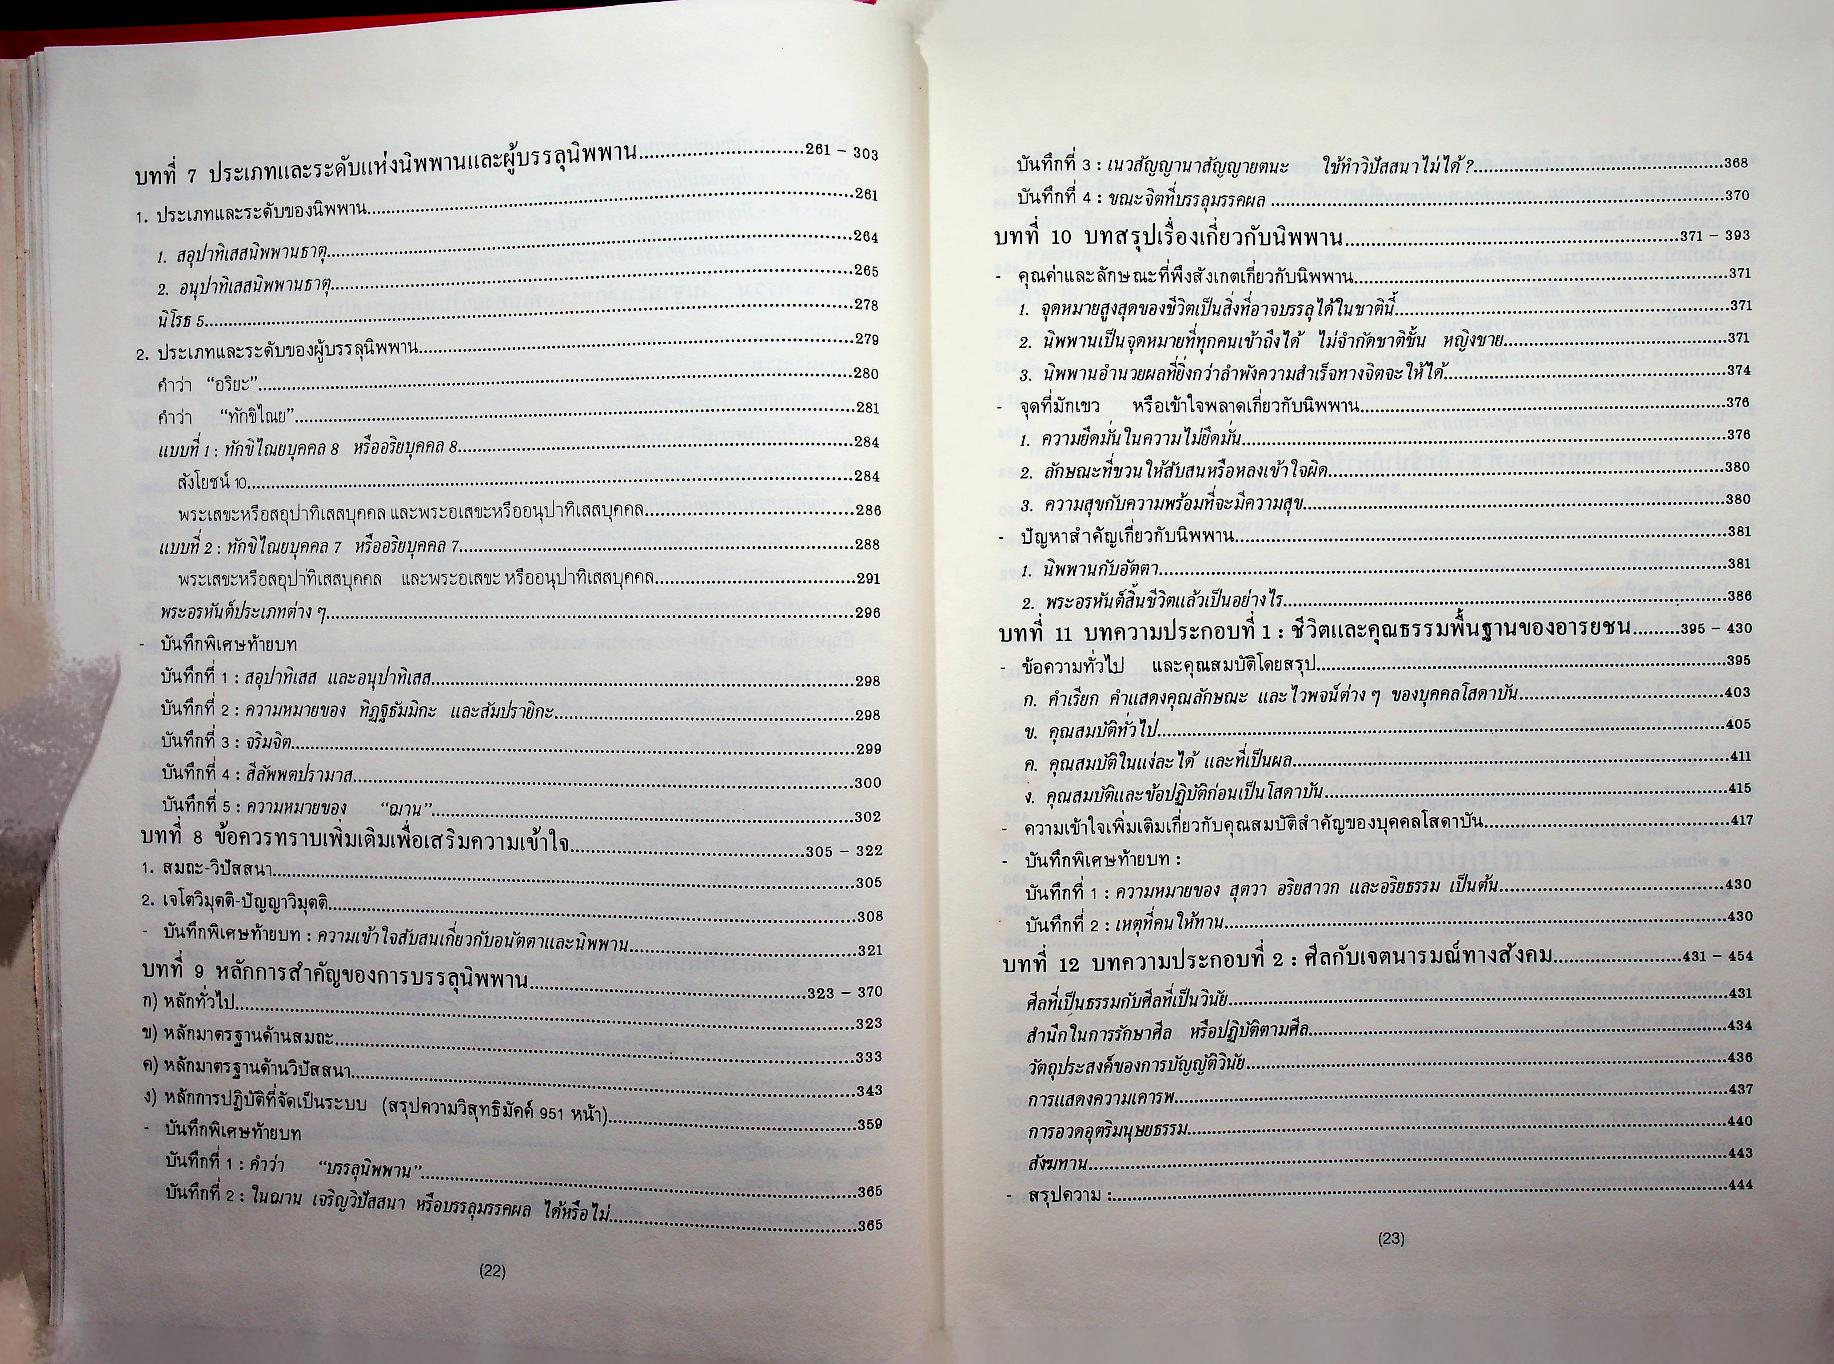 บทที่ 7 ประเภทและระดับแห่งนิพพานและผู้บรรลุนิพพาน....................261 – 303
1. ประเภทและระดับของนิพพาน....................261
1. สอุปาทิเสสนิพพานธาตุ....................264
2. อนุปาทิเสสนิพพานธาตุ....................265
นิโรธ 5....................278
2. ประเภทและระดับของผู้บรรลุนิพพาน....................279
คำว่า “อริยะ”....................280
คำว่า “ทักขิไณย”....................281
แบบที่ 1 : ทักขิไณยบุคคล 8 หรืออริยบุคคล 8....................284
สังโยชน์ 10....................284
พระเสขะหรือสอุปาทิเสสบุคคล และพระอเสขะหรืออนุปาทิเสสบุคคล....................286
แบบที่ 2 : ทักขิไณยบุคคล 7 หรืออริยบุคคล 7....................288
พระเสขะหรือสอุปาทิเสสบุคคล และพระอเสขะ หรืออนุปาทิเสสบุคคล....................291
พระอรหันต์ประเภทต่าง ๆ....................296
- บันทึกพิเศษท้ายบท
บันทึกที่ 1 : สอุปาทิเสส และอนุปาทิเสส....................298
บันทึกที่ 2 : ความหมายของ ทิฏฐธัมมิกะ และสัมปรายิกะ....................298
บันทึกที่ 3 : จริมจิต....................299
บันทึกที่ 4 : สีลัพพตปรามาส....................300
บันทึกที่ 5 : ความหมายของ “ฌาน”....................302
บทที่ 8 ข้อควรทราบเพิ่มเติมเพื่อเสริมความเข้าใจ....................305 – 322
1. สมถะ-วิปัสสนา....................305
2. เจโตวิมุตติ-ปัญญาวิมุตติ....................308
- บันทึกพิเศษท้ายบท : ความเข้าใจสับสนเกี่ยวกับอนัตตาและนิพพาน....................321
บทที่ 9 หลักการสำคัญของการบรรลุนิพพาน....................323 – 370
ก) หลักทั่วไป....................323
ข) หลักมาตรฐานด้านสมถะ....................333
ค) หลักมาตรฐานด้านวิปัสสนา....................343
ง) หลักการปฏิบัติที่จัดเป็นระบบ (สรุปความวิสุทธิมัคค์ 951 หน้า)....................359
- บันทึกพิเศษท้ายบท
บันทึกที่ 1 : คำว่า “บรรลุนิพพาน”....................365
บันทึกที่ 2 : ในฌาน เจริญวิปัสสนา หรือบรรลุมรรคผล ได้หรือไม่....................365
(22)
บันทึกที่ 3 : เนวสัญญานาสัญญายตนะ ใช้ทำวิปัสสนาไม่ได้ ?....................368
บันทึกที่ 4 : ขณะจิตที่บรรลุมรรคผล....................370
บทที่ 10 บทสรุปเรื่องเกี่ยวกับนิพพาน....................371 – 393
- คุณค่าและลักษณะที่พึงสังเกตเกี่ยวกับนิพพาน....................371
1. จุดหมายสูงสุดของชีวิตเป็นสิ่งที่อาจบรรลุได้ในชาตินี้....................371
2. นิพพานเป็นจุดหมายที่ทุกคนเข้าถึงได้ ไม่จำกัดชาติชั้น หญิงชาย....................371
3. นิพพานอำนวยผลที่ยิ่งกว่าลำพังความสำเร็จทางจิตจะให้ได้....................374
- จุดที่มักเขว หรือเข้าใจพลาดเกี่ยวกับนิพพาน....................376
1. ความยึดมั่นในความไม่ยึดมั่น....................376
2. ลักษณะที่ชวนให้สับสนหรือหลงเข้าใจผิด....................380
3. ความสุขกับความพร้อมที่จะมีความสุข....................380
- ปัญหาสำคัญเกี่ยวกับนิพพาน....................381
1. นิพพานกับอัตตา....................381
2. พระอรหันต์สิ้นชีวิตแล้วเป็นอย่างไร....................386
บทที่ 11 บทความประกอบที่ 1 : ชีวิตและคุณธรรมพื้นฐานของอารยชน....................395 – 430
- ข้อความทั่วไป และคุณสมบัติโดยสรุป....................395
ก. คำเรียก คำแสดงคุณลักษณะ และไวพจน์ต่าง ๆ ของบุคคลโสดาบัน....................403
ข. คุณสมบัติทั่วไป....................405
ค. คุณสมบัติในแง่ละได้ และที่เป็นผล....................411
ง. คุณสมบัติและข้อปฏิบัติก่อนเป็นโสดาบัน....................415
- ความเข้าใจเพิ่มเติมเกี่ยวกับคุณสมบัติสำคัญของบุคคลโสดาบัน....................417
- บันทึกพิเศษท้ายบท :
บันทึกที่ 1 : ความหมายของ สุตวา อริยสาวก และอริยธรรม เป็นต้น....................430
บันทึกที่ 2 : เหตุที่คนให้ทาน....................430
บทที่ 12 บทความประกอบที่ 2 : ศีลกับเจตนารมณ์ทางสังคม....................431 – 454
ศีลที่เป็นธรรมกับศีลที่เป็นวินัย....................431
สำนึกในการรักษาศีล หรือปฏิบัติตามศีล....................434
วัตถุประสงค์ของการบัญญัติวินัย....................436
การแสดงความเคารพ....................437
การอวดอุตริมนุษยธรรม....................440
สังฆทาน....................443
- สรุปความ :....................444
(23)